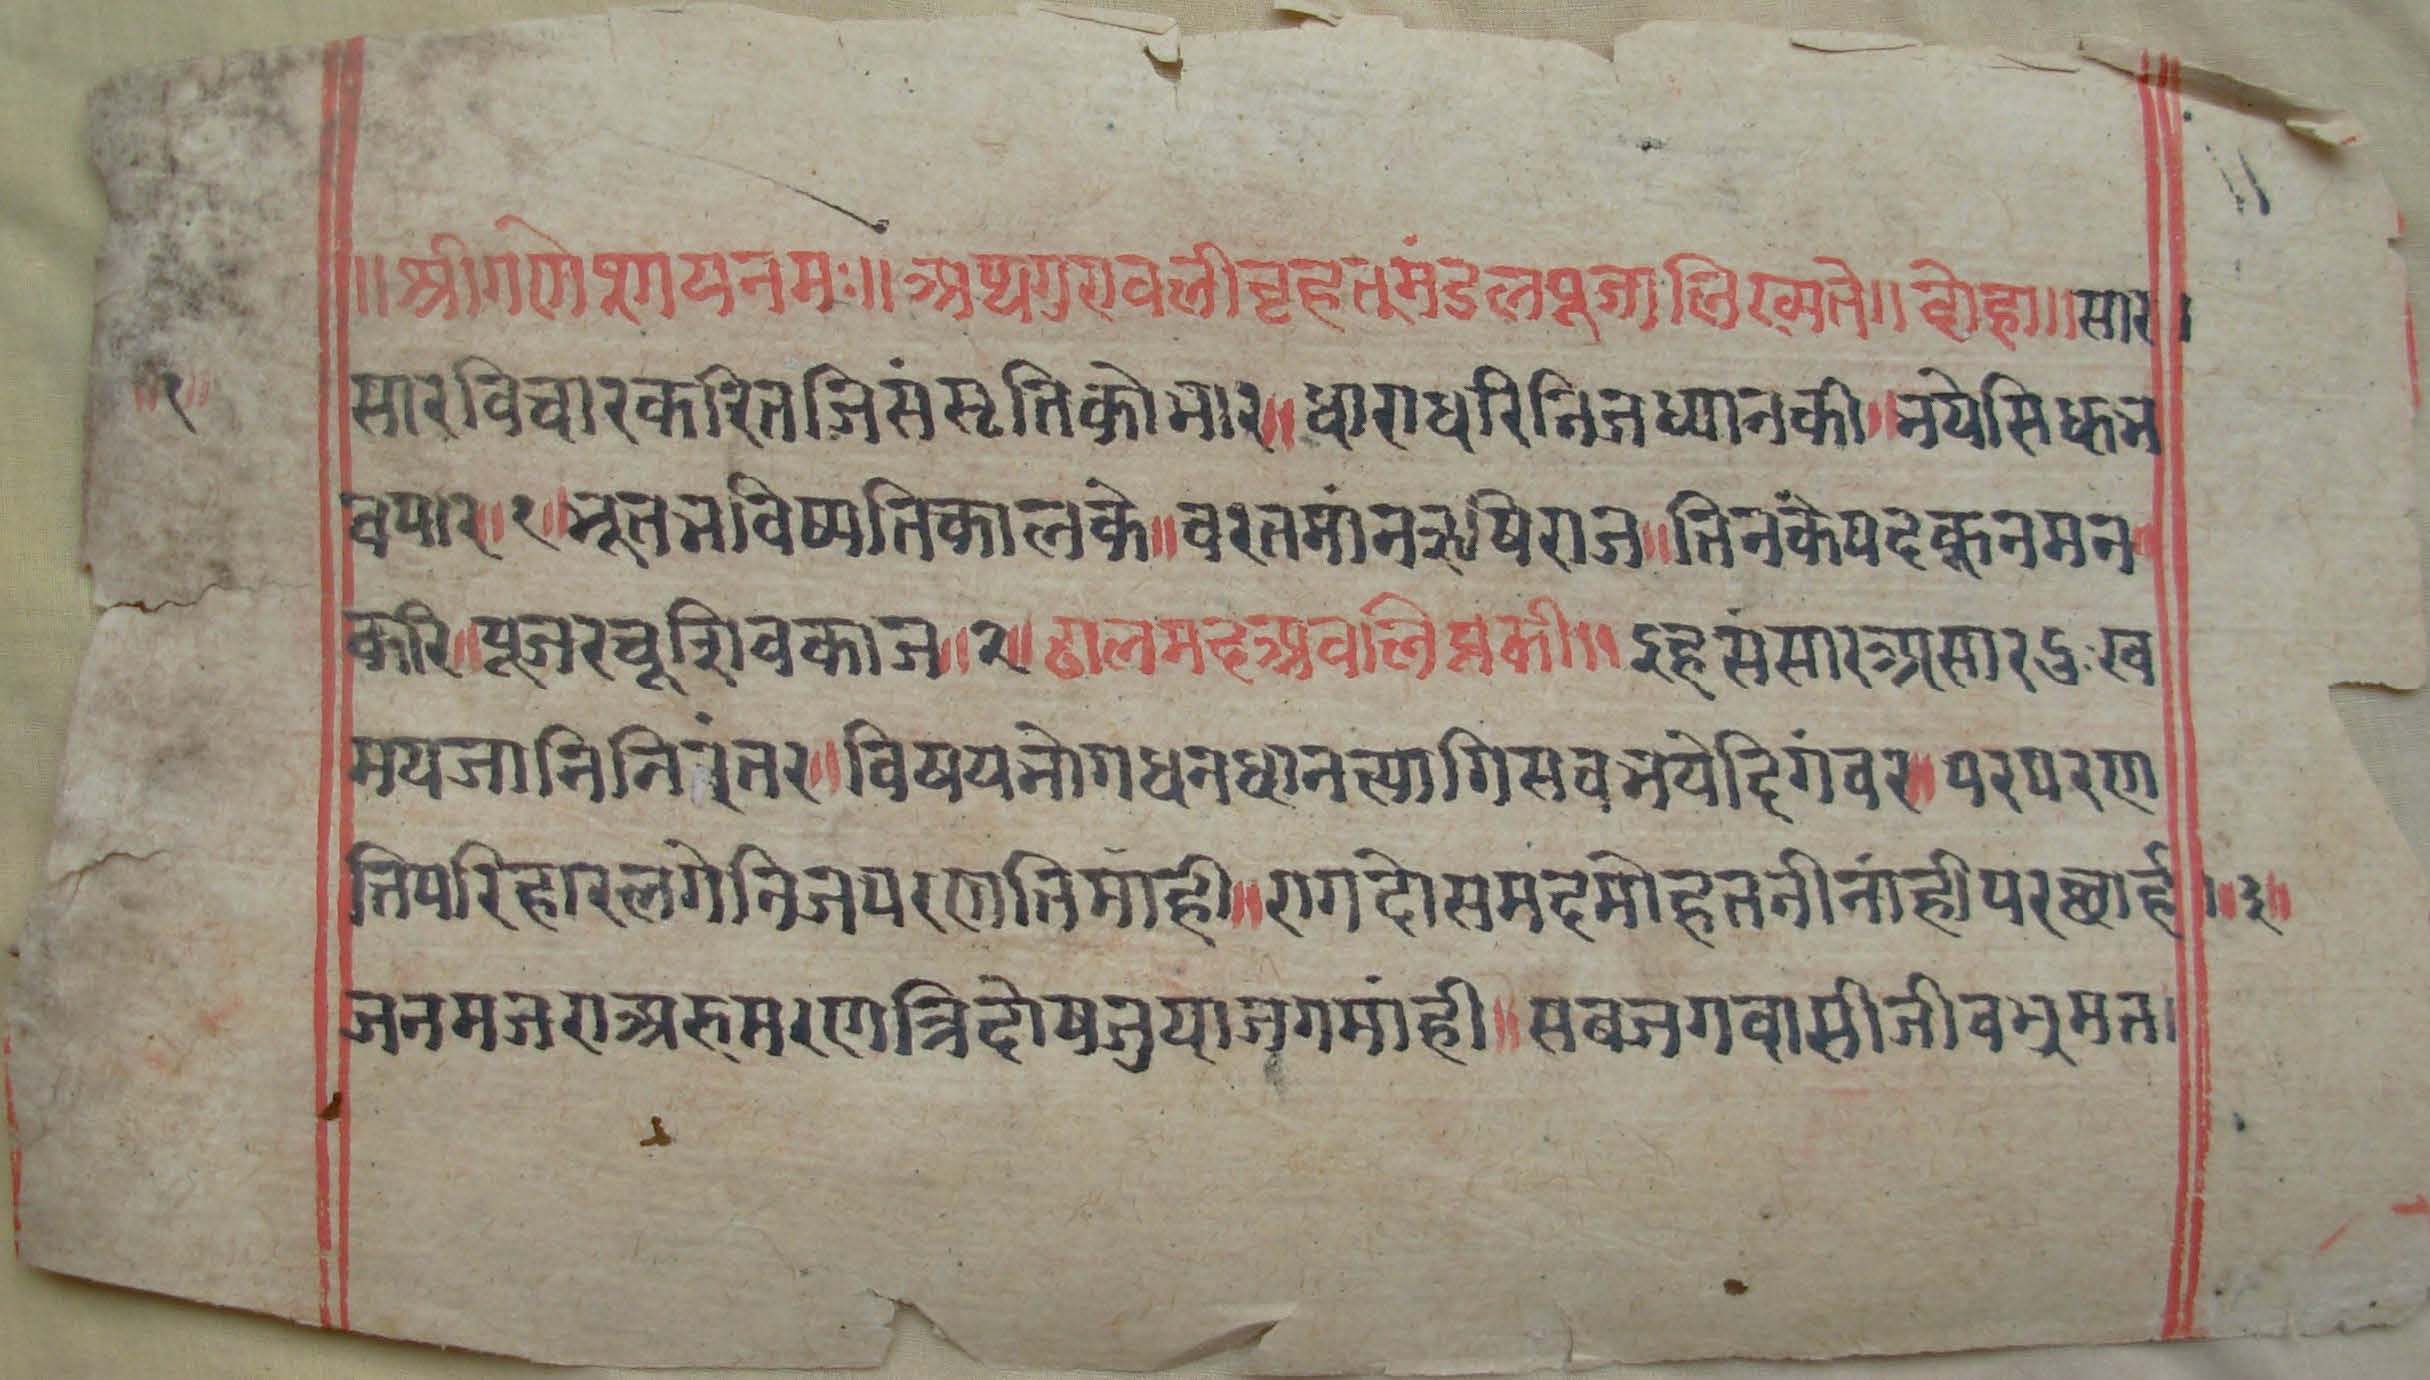 ॥श्रीगणेशायनमः॥अथगुरावलीवृहत्मंडलपूजालिख्यते॥दोहा॥सार।
॥१॥
सारविचारकरितजिसंसृतिकोभार॥धाराधरिनिजध्यानकी॥भयेसिधभ
वपार॥१॥भूतभविष्यतिकालके॥वरतमांनऋषिराज॥तिनकेंपदकूनमन
करि॥पूजरचूशिवकाज॥२॥ढालमदअवलिप्तकी॥इहसंसारअसारदुःख
मयजानिनिरंतर॥विषयभोगधनधानत्यागिसवभयेदिगंवर॥परपरण
तिपरिहारलगेनिजपरणतिमांही॥रागदोसमदमोहतनीनांहीपरछाई॥३॥
जनमजराअरुमरणत्रिदोषजुयाजगमांही॥सबजगवासीजीवभ्रमत।